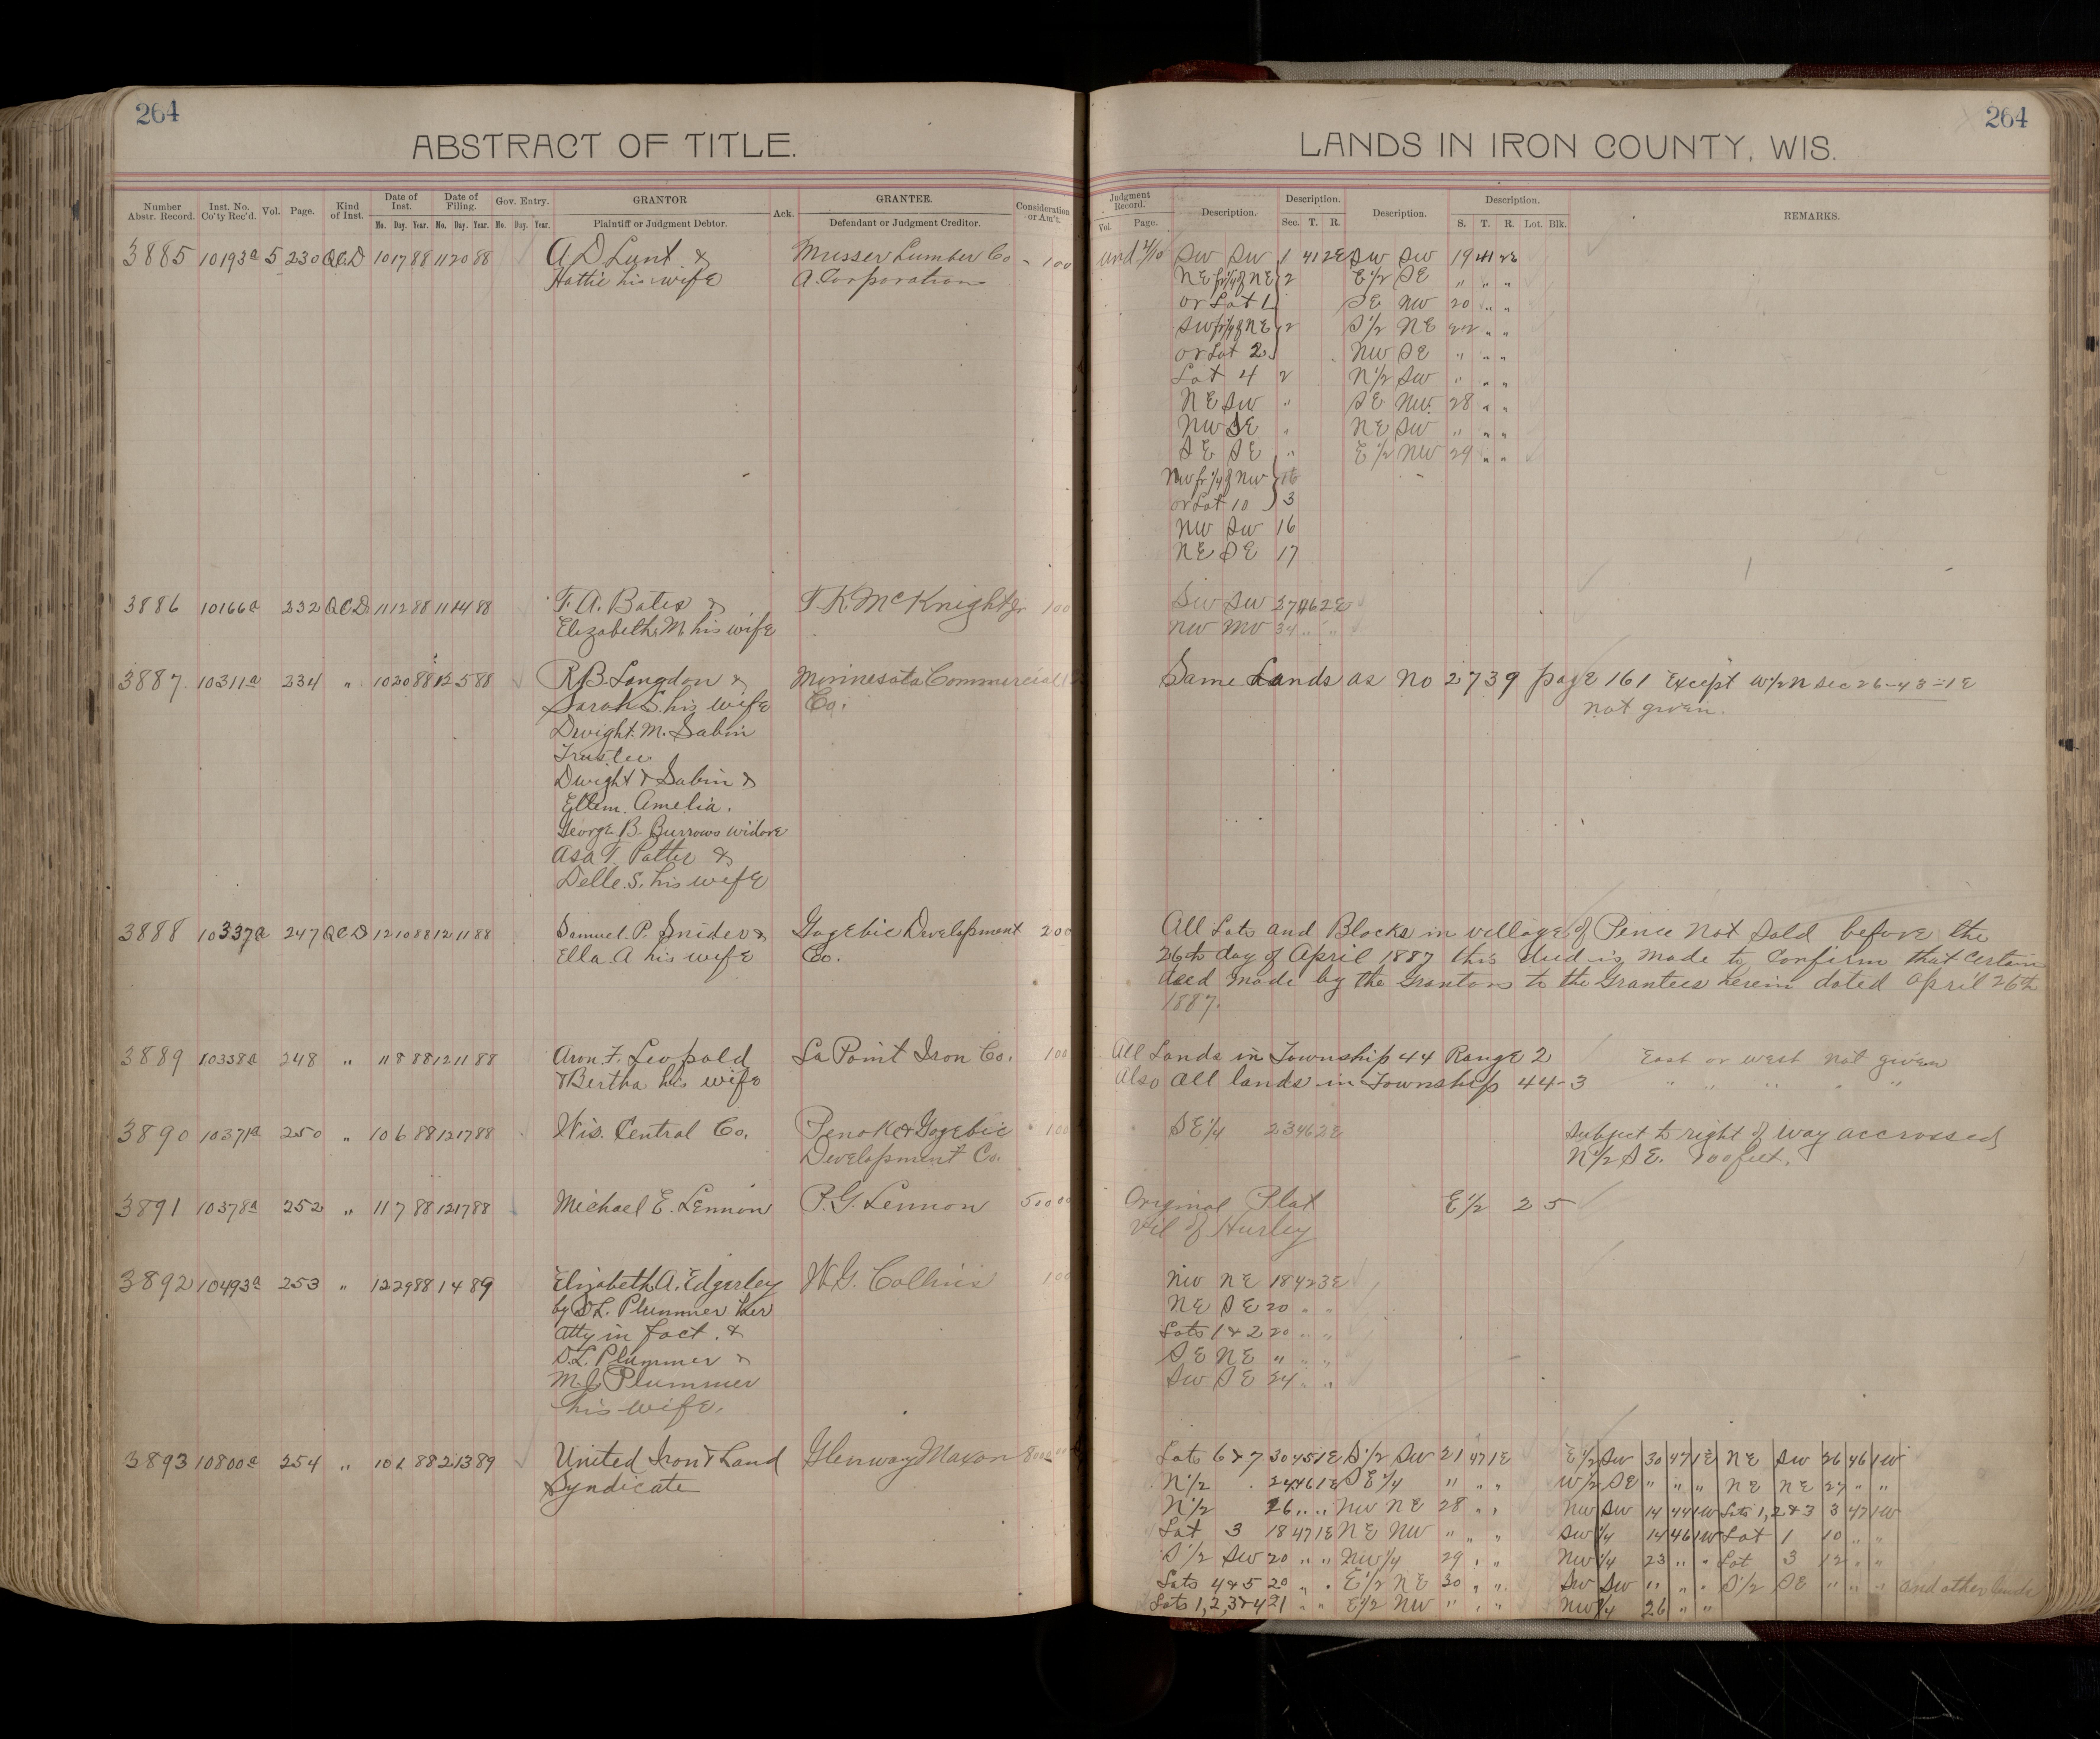 264
ABSTRACT OF TITLE.
Number Abstr. Record. Inst. No. Co'ty Rec'd. Vol. Page. Kind of Inst. Date of Inst. Date of Filing. Gov. Entry. GRANTOR Ack. GRANTEE. Consideration or Am't.
Mo. Day. Year. Mo. Day. Year. Mo. Day. Year. Plaintiff or Judgment Debtor. Defendant or Judgment Creditor.
3885 10193a 5 230 QCD 10 17 88 11 20 88 A D Lunt & Musser Lumber Co 100
Hattie his wife A. Corporation
3886 10166a 232 QCD 11 12 88 11 14 88 T. A. Bates & T. K. McKnight Jr 100
Elizabeth M his wife
3887. 10311a 234 " 10 20 88 12 5 88 R. B. Langdon & Minnesota Commercial
Sarah S. his wife Co.
Dwight M. Sabin
Trustee
Dwight Sabin &
Ellem Amelia.
George B. Burrows widore
Asa T. Patter &
Delle. S. his wife
3888 10337a 247 QCD 12 10 88 12 11 88 Samuel. P. Snider & Gogebic Development 200
Ella A his wife Co.
3889 10338a 248 " 11 8 88 12 11 88 Aron F. Leopold La Point Iron Co. 100
& Bertha his wife
3890 10371a 250 " 10 6 88 12 17 88 Wis. Central Co. Penoke & Gogebic 100
Development Co.
3891 10378a 252 " 11 7 88 12 17 88 Michael E. Lennon P. G. Lennon 500 00
3892 10493a 253 " 12 29 88 1 4 89 Elizabeth A. Edgerley W. G. Collins 100
by D L. Plummer her
atty in fact. &
D. L. Plummer &
M. J. Plummer
his wife.
3893 10800a 254 " 10 1 88 2 13 89 United Iron & Land Glenway Maxon
Syndicate
264
LANDS IN IRON COUNTY, WIS.
Judgment Record. Description. Description. Description. Description. REMARKS.
Vol. Page. Sec. T. R. S. T. R. Lot. Blk.
SW SW 1 41 2E SW SW 19 41 2E
NE fr ¼ of NE 2 E ½ SE " " "
or Lot 1 SE NW 20 " "
SW fr ¼ of NE 2 S ½ NE 22 " "
or Lot 2 NW SE " " "
Lot 4 2 N ½ SW " " "
NE SW " SE NW. 28 " "
NW SE " NE SW " " "
SE SE " E ½ NW 29 " "
NW fr ¼ of NW
or Lot 10 3
NW SW 16
NE SE 17
SW SW 27 46 2E
NW NW 34 " "
Same Lands as No 2739 page 161 Except W ½ N Sec 26-48-1E
not given.
All Lots and Blocks in village of Pence Not Sold before the
26th day of April 1887 this deed is made to Confirm that Certain
deed made by the Grantors to the Grantees herein dated April 26th
1887.
All Lands in Township 44 Range 2 East or west not given
Also All lands in Township 44-3 " " " " "
SE ¼ 23 46 2E Subject to right of way accrossed
N ½ SE. 100 feet.
Original Plat E ½ 2 5
Vil of Hurley
NW NE 18 42 3E
NE SE 20 " "
Lots 1 & 2 20 " "
SE NE " " "
SW SE 34 " "
Lots 6 & 7 30 45 1E S ½ SW 21 47 1E E ½ SW 30 47 1E NE SW 26 46 1W
N ½ 24 46 1E SE ¼ " " " W ½ SE " " " NE NE 27 " "
N ½ 26 " " NW NE 28 " " NW SW 14 44 1W Lots 1, 2 & 3 3 47 1W
Lot 3 18 47 1E NE NW " " " SW ¼ 14 46 1W Lot 1 10 " "
S ½ SW 20 " " NW ¼ 29 " " NW ¼ 23 " " Lot 3 12 " "
Lots 4 & 5 20 " " E ½ NE 30 " " SW SW " " " S ½ SE " " " and other lands
Lots 1, 2, 3 & 4 21 " " E ½ NW " " " NW ¼ 26 " "